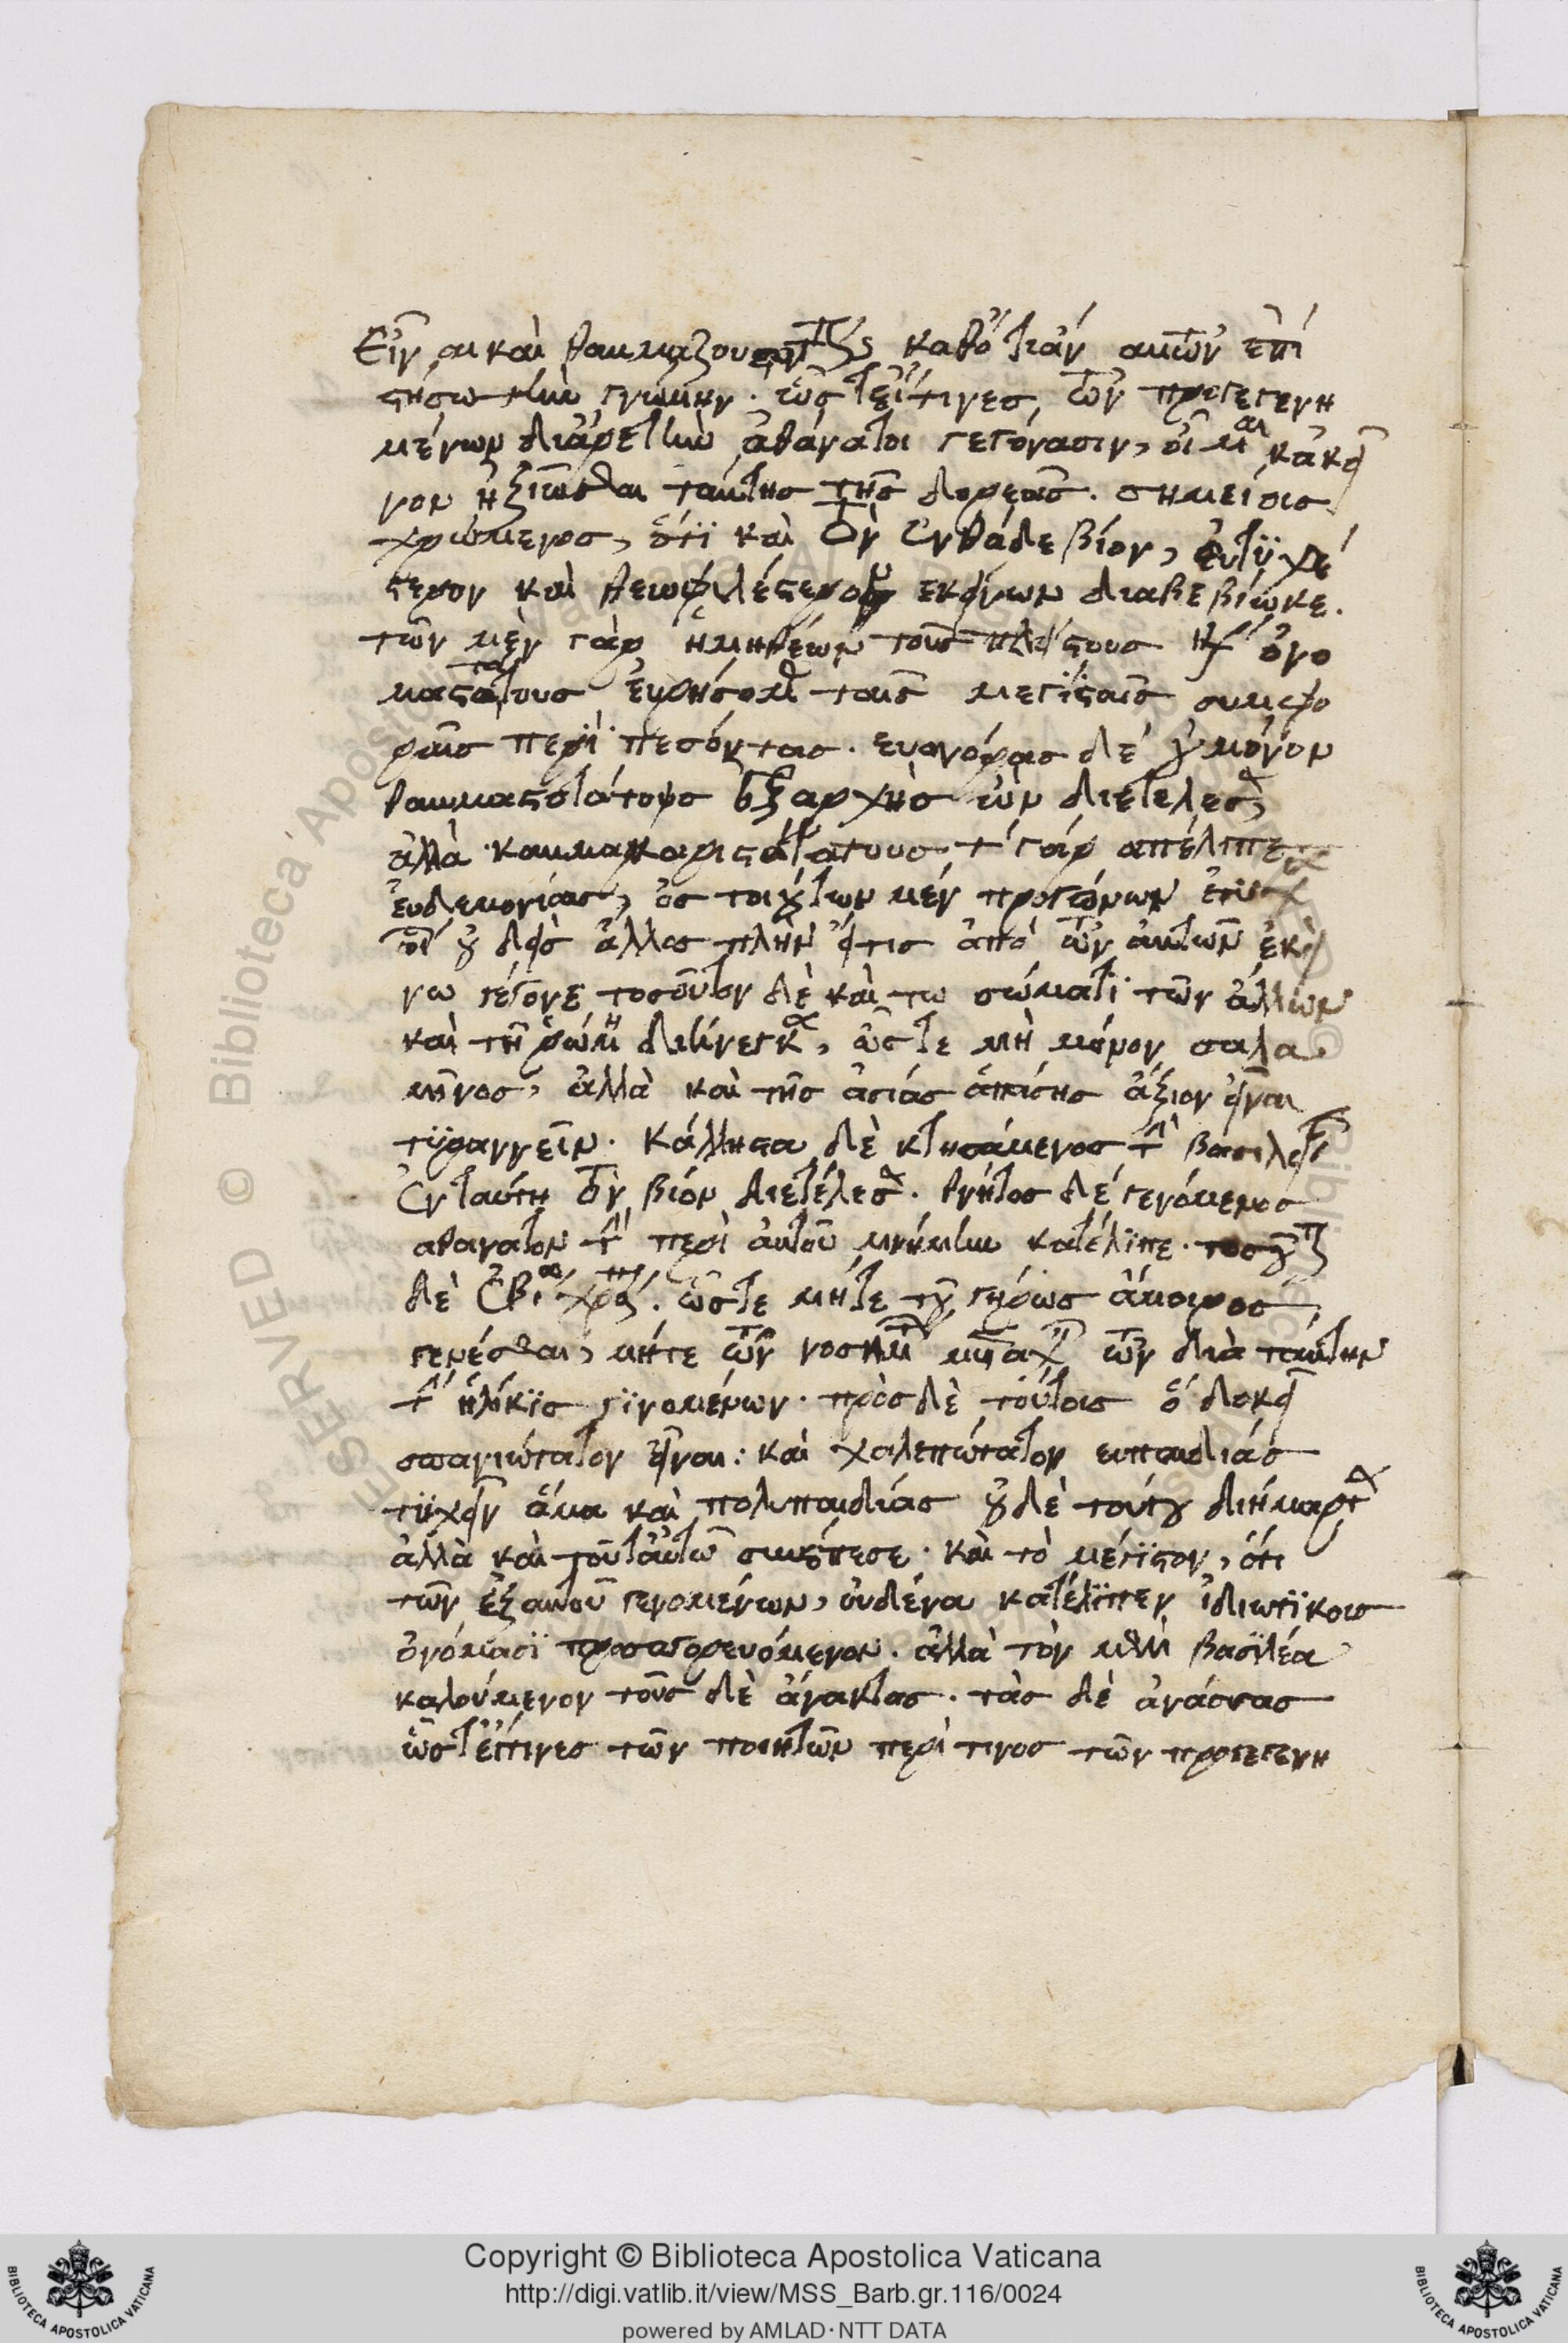 Εἶναι καὶ θαυμάζουσιν καθ' ὅ τι ἂν αυτῶν ἐπι
στήσω τὴν γνώμην. ὥστ' εἴ τινες τῶν προγεγενη
μένων δι' ἀρετὴν ἀθάνατοι γεγόνασιν, οἶμαι κἀκεῖ
νον ἠξιῶσθαι ταύτης τῆς δορεᾶς. σημείοις
χρώμενος, ὅτϊ καὶ τὸν ἐνθάδε βίον, ἐυτϋχέ
στερον καὶ θεωφιλέστερον εκείνων διαβεβίωκε.
τῶν μὲν γὰρ ἡμιθέων τοὺς πλείστους καὶ ὀνο
μαστοτάτους ἑυρήσομεν ταῖς μεγίσταις συμφο
ραῖς περϊπεσόντας. ευαγόρας δὲ οὐ μόνον
θαυμαστότατος ἐξ αρχῆς ὢν διετέλεσεν
ἀλλὰ καὶ μακαριστότατος. τί γὰρ απέλιπεν
ἐυδεμονίας, ὃς τοιούτων μὲν προγόνων ἔτυχεν
οἵ οὐδεὶς ἄλλος πλὴν εἴ τις ἀπὸ τῶν ἀυτῶν ἐκεί
νω γέγονε τοσοῦτον δὲ καὶ τω σώματϊ τῶν ἄλλων
καὶ τῆ ῥώμη διήνεγκεν, ὥστε μὴ μόνον σαλα
μῖνος, ἀλλὰ καὶ τῆς ἀσίας ἁπάσης ἄξιον εἶναι
τϋραννεῖν. Κάλλιστα δὲ κτησάμενος τὴν βασιλείαν
ἐν ταύτη τὸν βίον διετέλεσεν. θνητος δὲ γενόμενος
αθανατον τὴν περὶ ἀυτοῦ μνήμην κατέλϊπε. τοσοῦτον
δὲ ἐβίω χρόνον. ὥστε μήτε τοῦ γήρως ἄμοιρος
γενέσθαι, μήτε τῶν νοσημάτων μετασχεῖν τῶν διὰ ταύτην
τὴν ἡλικϊς γϊνομένων. πρὸς δὲ τούτοις ὃ δοκεῖ
σπανιώτατον εἶναι: καὶ χαλεπώτατον ευπαιδίας
τϋχεῖν ἅμα καὶ πολυπαιδίας οὐδὲ τούτου διήμαρτεν
ἀλλὰ καὶ τοῦτ' ἀυτῶ συνέπεσε. καὶ τὸ μέγϊστον, ὅτι
τῶν ἐξ αυτοῦ γενομένων, ὀυδένα κατέλϊπεν ἰδιωτϊκοις
ὀνόμασϊ προσαγορευόμενον. ἀλλὰ τὸν μὲν βασϊλέα
καλούμενον τοὺς δὲ ἄνακτας. τὰς δὲ ἀνάσσας
ὥστ' ἔι τινες τῶν ποιητῶν περὶ τινος τῶν προγεγενη
Copyright © Biblioteca Apostolica Vaticana
http://digi.vatlib.it/view/MSS_Barb.gr.116/0024
powered by AMLAD·NTT DATA